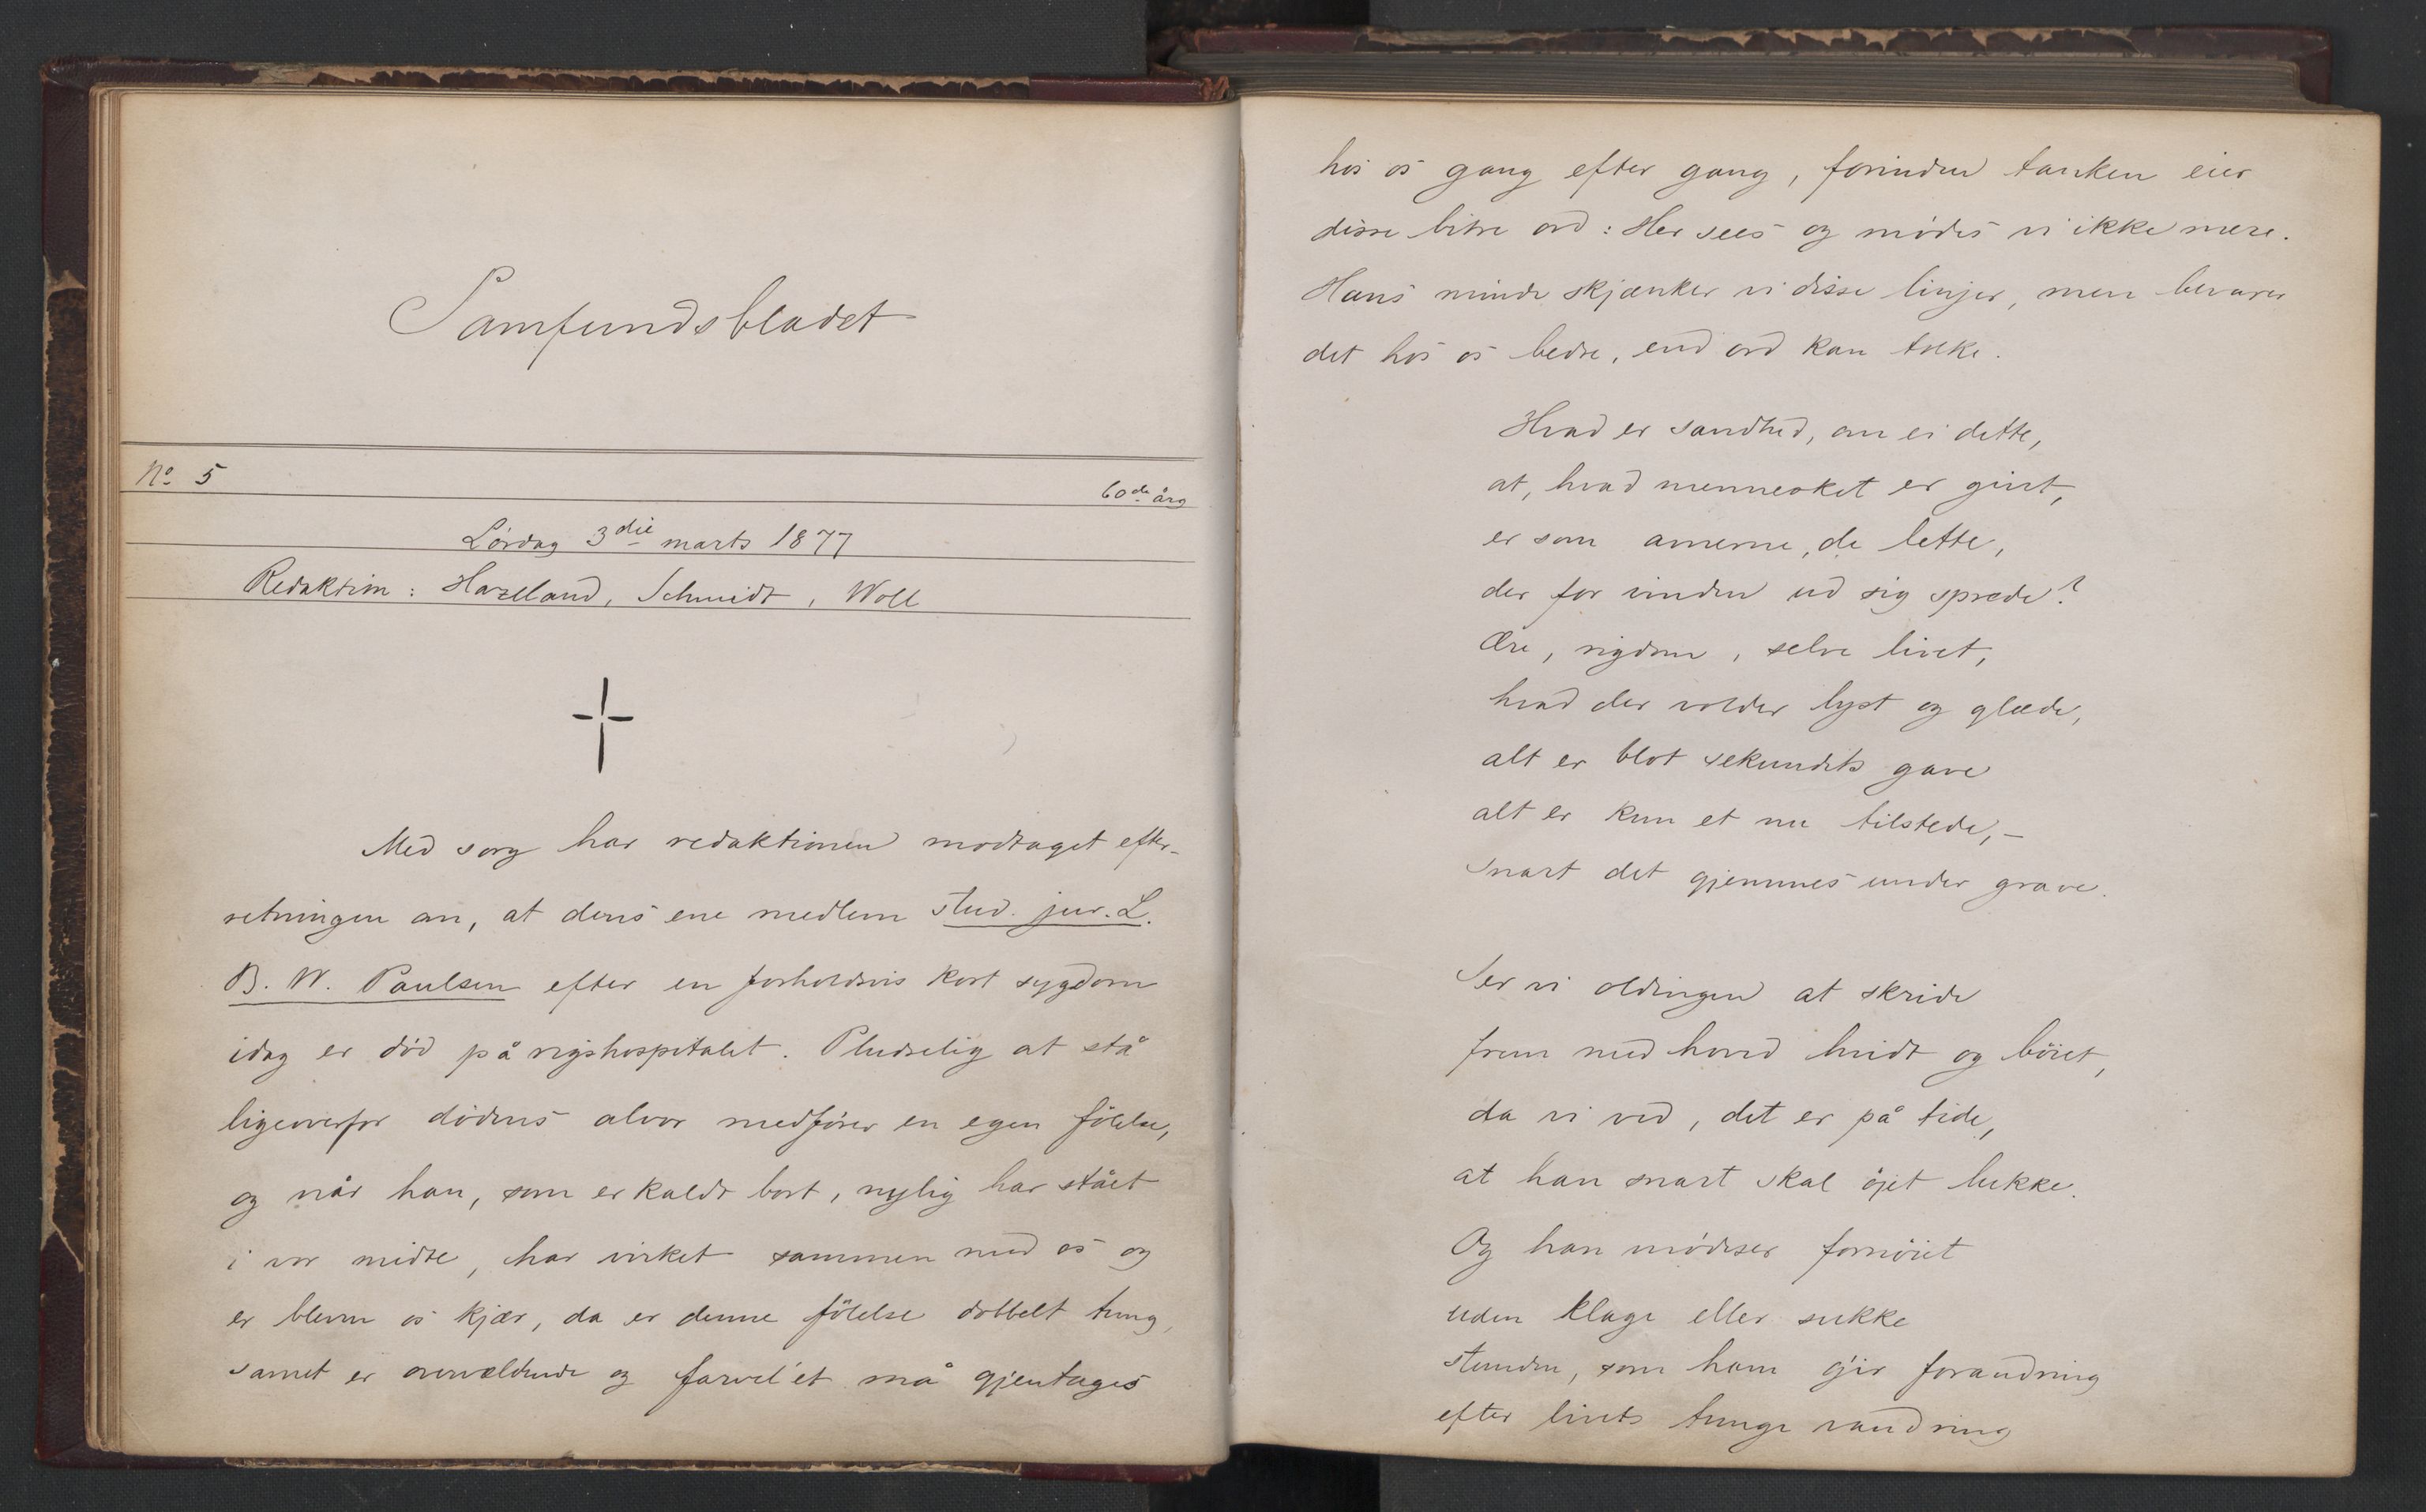 Samfundsbladet
No 5
60de årg
Lördag 3die marts 1877
Redaktion: Hazeland, Schmidt, Woll
Med sorg har redaktionen modtaget efter-
retningen om, at dens ene medlem stud. jur. L.
B. W. Paulsen efter en forholdsvis kort sygdom
idag er död på rigshospitalet. Pludselig at stå
ligeoverfor dödens alvor medförer en egen fölelse,
og når han, som er kaldt bort, nylig har stået
i vor midte, har virket sammen med os og
er bleven os kjær, da er denne fölelse dobbelt tung,
savnet er overvældende og farvel'et må gjentages
hos os gang efter gang, forinden tanken eier
disse bitre ord: Her sees og mödes vi ikke mere.
Hans minde skjænker vi disse linjer, men bevarer
det hos os bedre, end ord kan tolke.
Hvad er sandhed, om ei dette,
at, hvad mennesket er givet,
er som avnerne, de lette,
der for vinden ud sig sprede?
Ære, rigdom, selve livet,
hvad der volder lyst og glæde,
alt er blot sekundets gave
alt er kun et nu tilstede, –
Snart det gjemmes under grave.
Ser vi oldingen at skride
frem med hoved hvidt og böiet,
da vi ved, det er på tide,
at han snart skal öjet lukke.
Og han mödeser fornöiet
uden klage eller sukke
stunden, som ham gjir forandring
efter livets tunge vandring